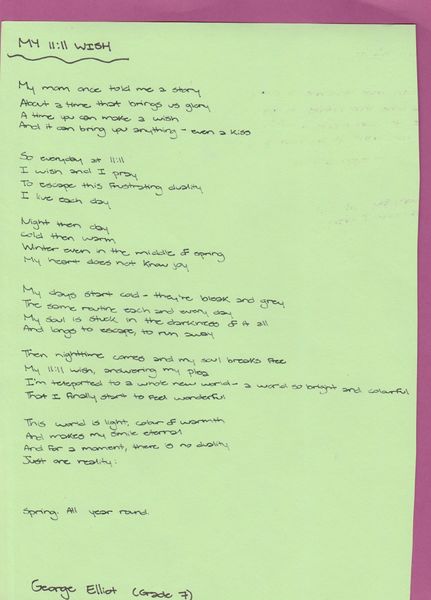 MY 11:11 WISH
My mom once told me a story
About a time that brings us glory
A time you can make a wish
And it can bring you anything - even a kiss
So everyday at 11:11
I wish and I pray
To escape this frustrating duality
I live each day
Night then day
Cold then warm
Winter even in the middle of spring
My heart does not know joy
My days start cold - they're bleak and grey
The same routine each and every day
My soul is stuck in the darkness of it all
And longs to escape, to run away
Then nighttime comes and my soul breaks free
My 11:11 wish, answering my plea
I'm teleported to a whole new world - a world so bright and colourful
That I finally start to feel wonderful
This world is light, colour of warmth
And makes my smile eternal
And for a moment, there is no duality
Just one reality:
Spring. All year round.
George Elliot (Grade 7)